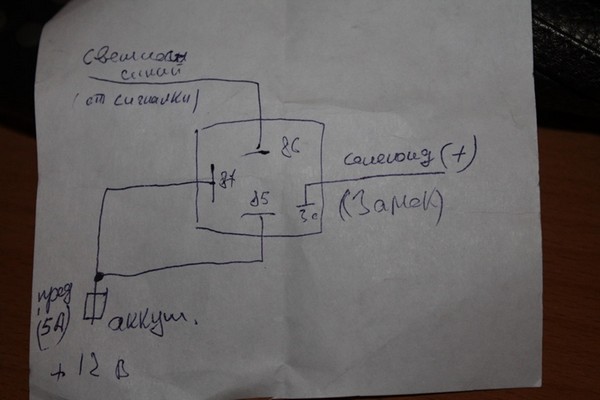 светло
синий
(от сигналки)
86
87
85
30
соленоид (+)
(Замок)
пред
(5А)
аккум.
+ 12 В